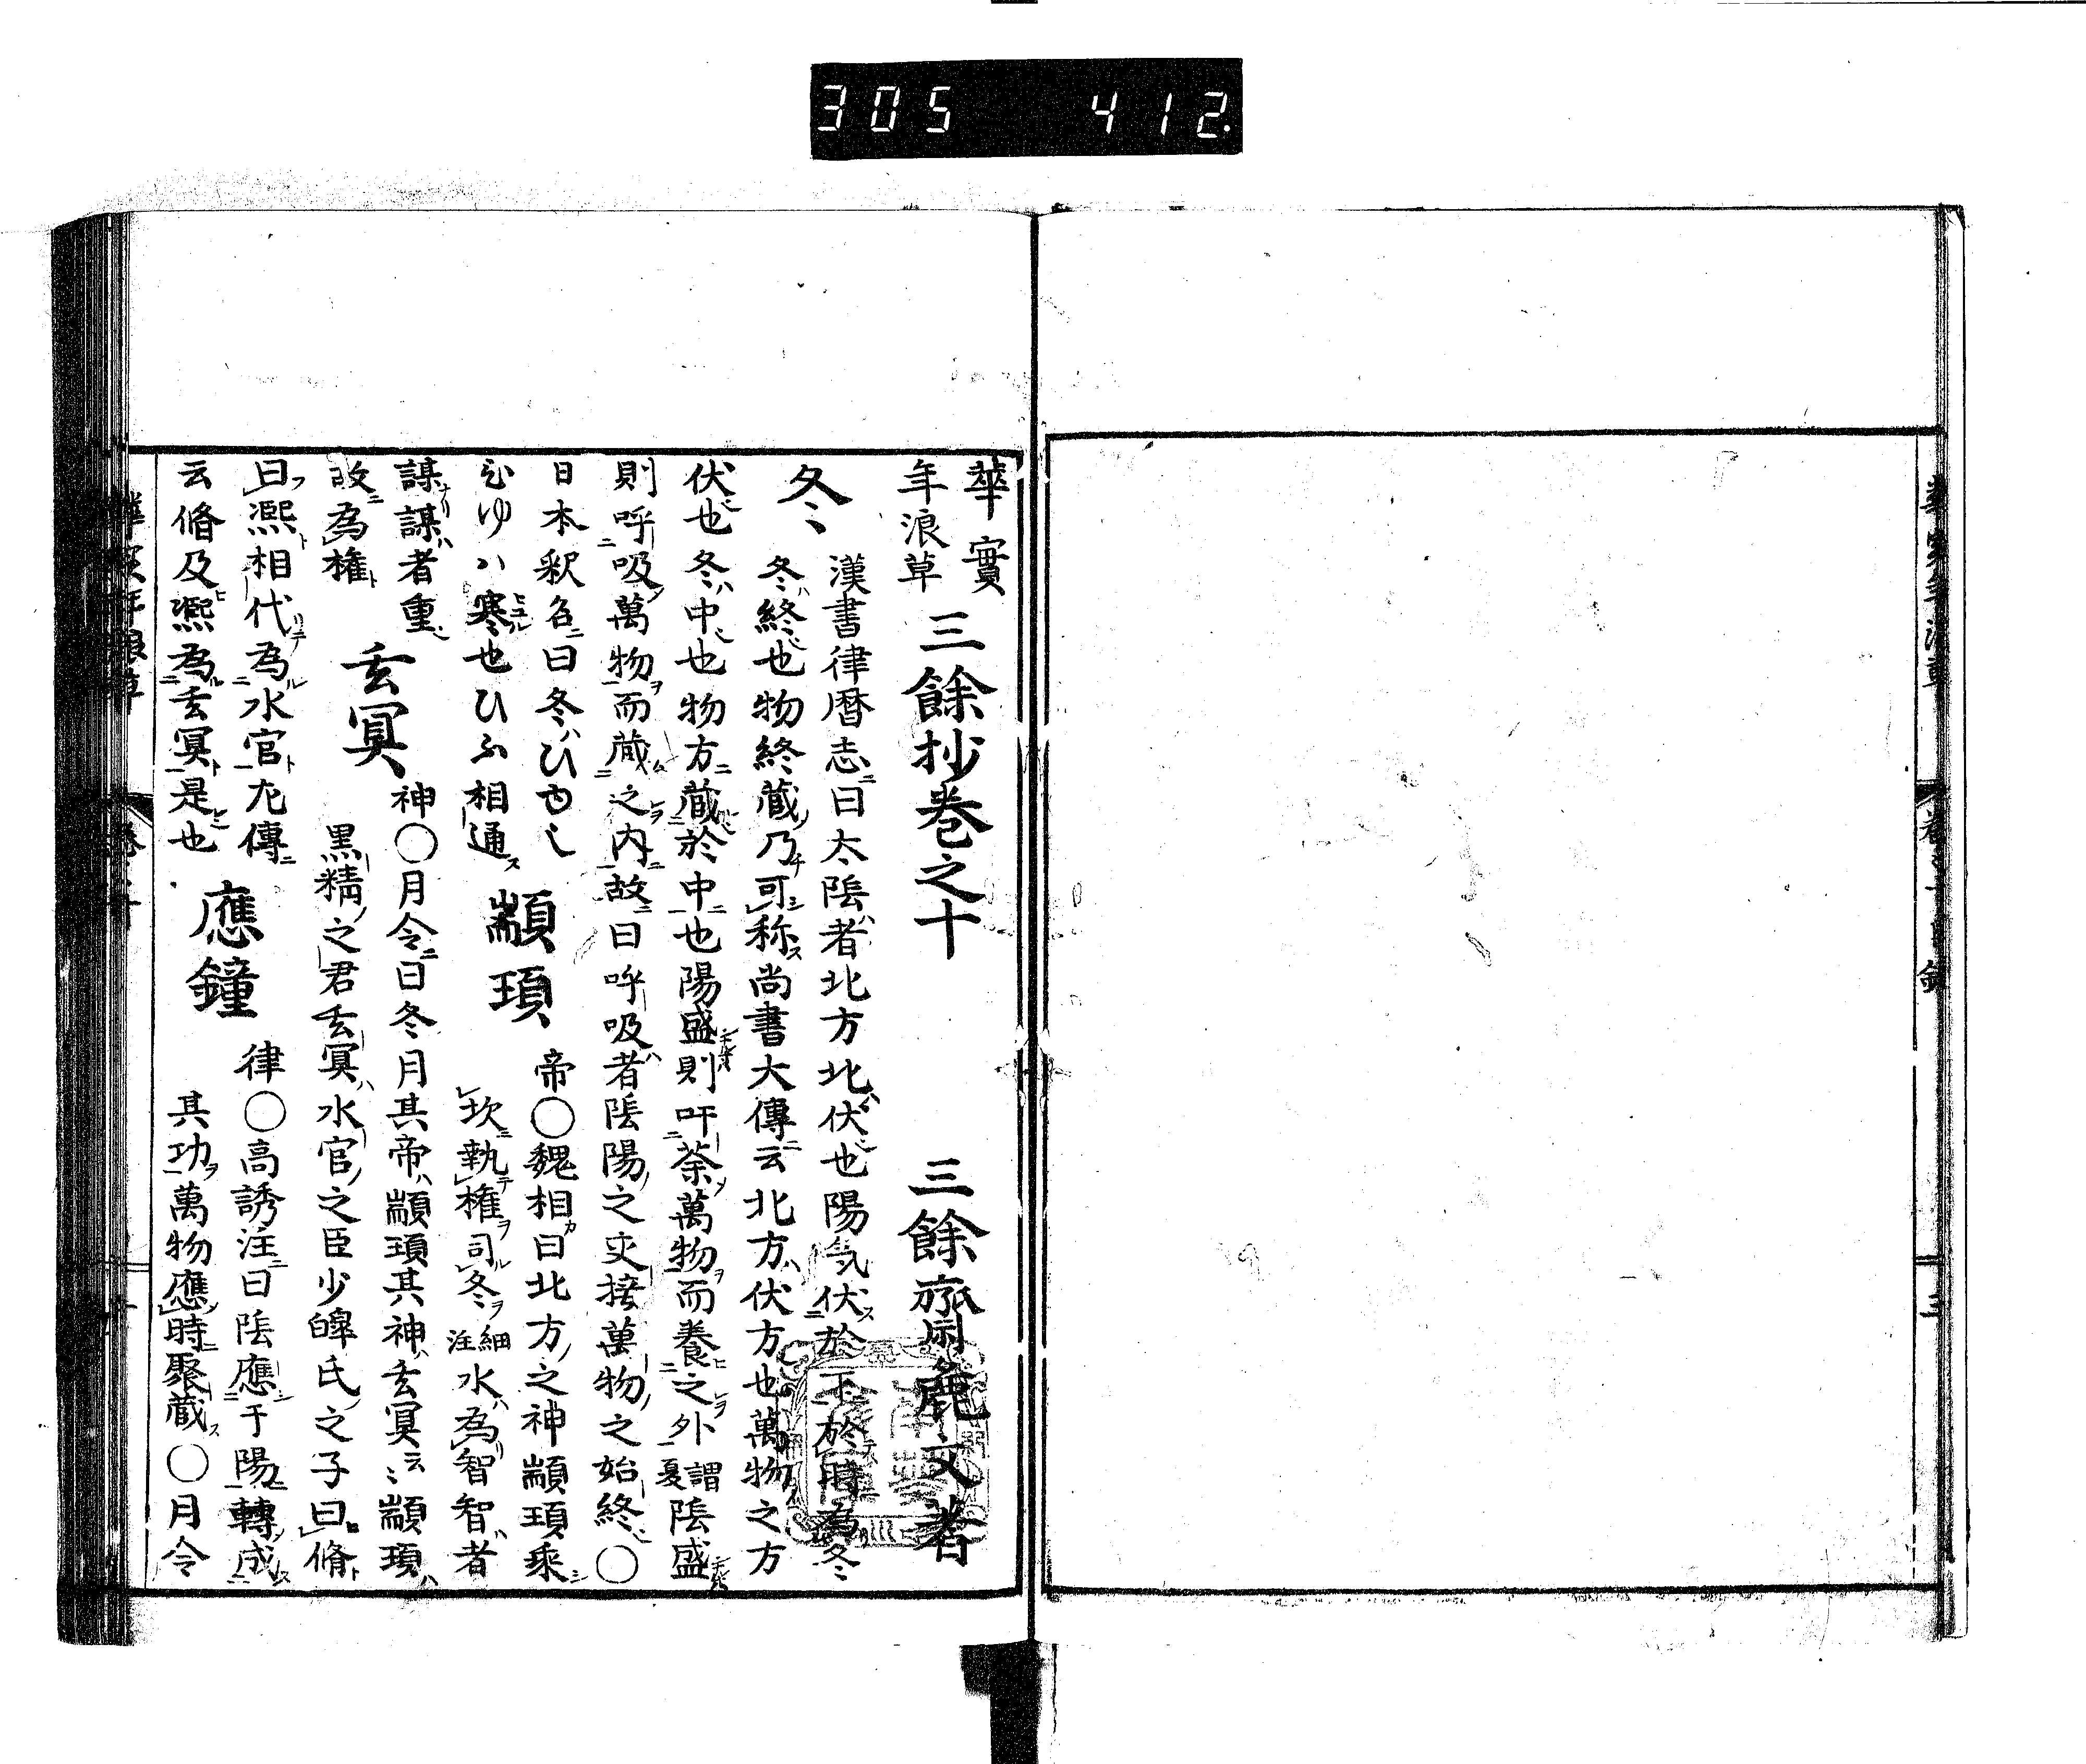 305 412
華實
年浪草
三餘抄巻之十
三餘齋麁文著
冬
漢書律暦志曰太陰者北方北伏也陽气伏於下於時為冬
冬終也物終蔵乃可称尚書大傳云北方伏方也萬物之方
伏也冬中也物方蔵於中也陽盛則吁荼萬物而養之外
謂
夏
陰盛
則呼吸萬物而蔵之内故曰呼吸者陰陽之交接萬物之始終○
日本釈名曰冬ハひ也
ひゆハ寒也ひふ相通
顓頊
帝○魏相曰北方之神顓頊乘
坎執権司冬
細
注
水為智智者
謀謀者重
故為権
玄冥
神○月令曰冬月其帝顓頊其神玄冥云〻顓頊
黒精之君玄冥水官之臣少皥氏之子曰脩
曰熙相代為水官左傳
云脩及熙為玄冥是也
應鐘
律○高誘注曰陰應于陽轉成
其功萬物應時聚蔵○月令